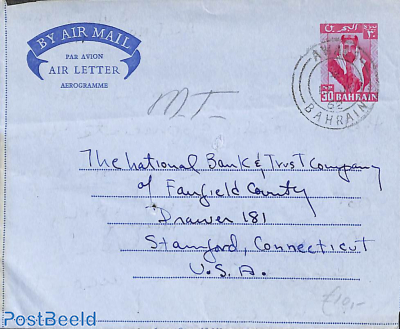 BY AIR MAIL
PAR AVION
AIR LETTER
AEROGRAMME
البحرين
30 BAHRAIN
62
BAHRAIN
M.T-
The National Bank & Trust Company
of Fairfield County
Drawer 181
Stamford, Connecticut
U.S.A.
PostBeeld